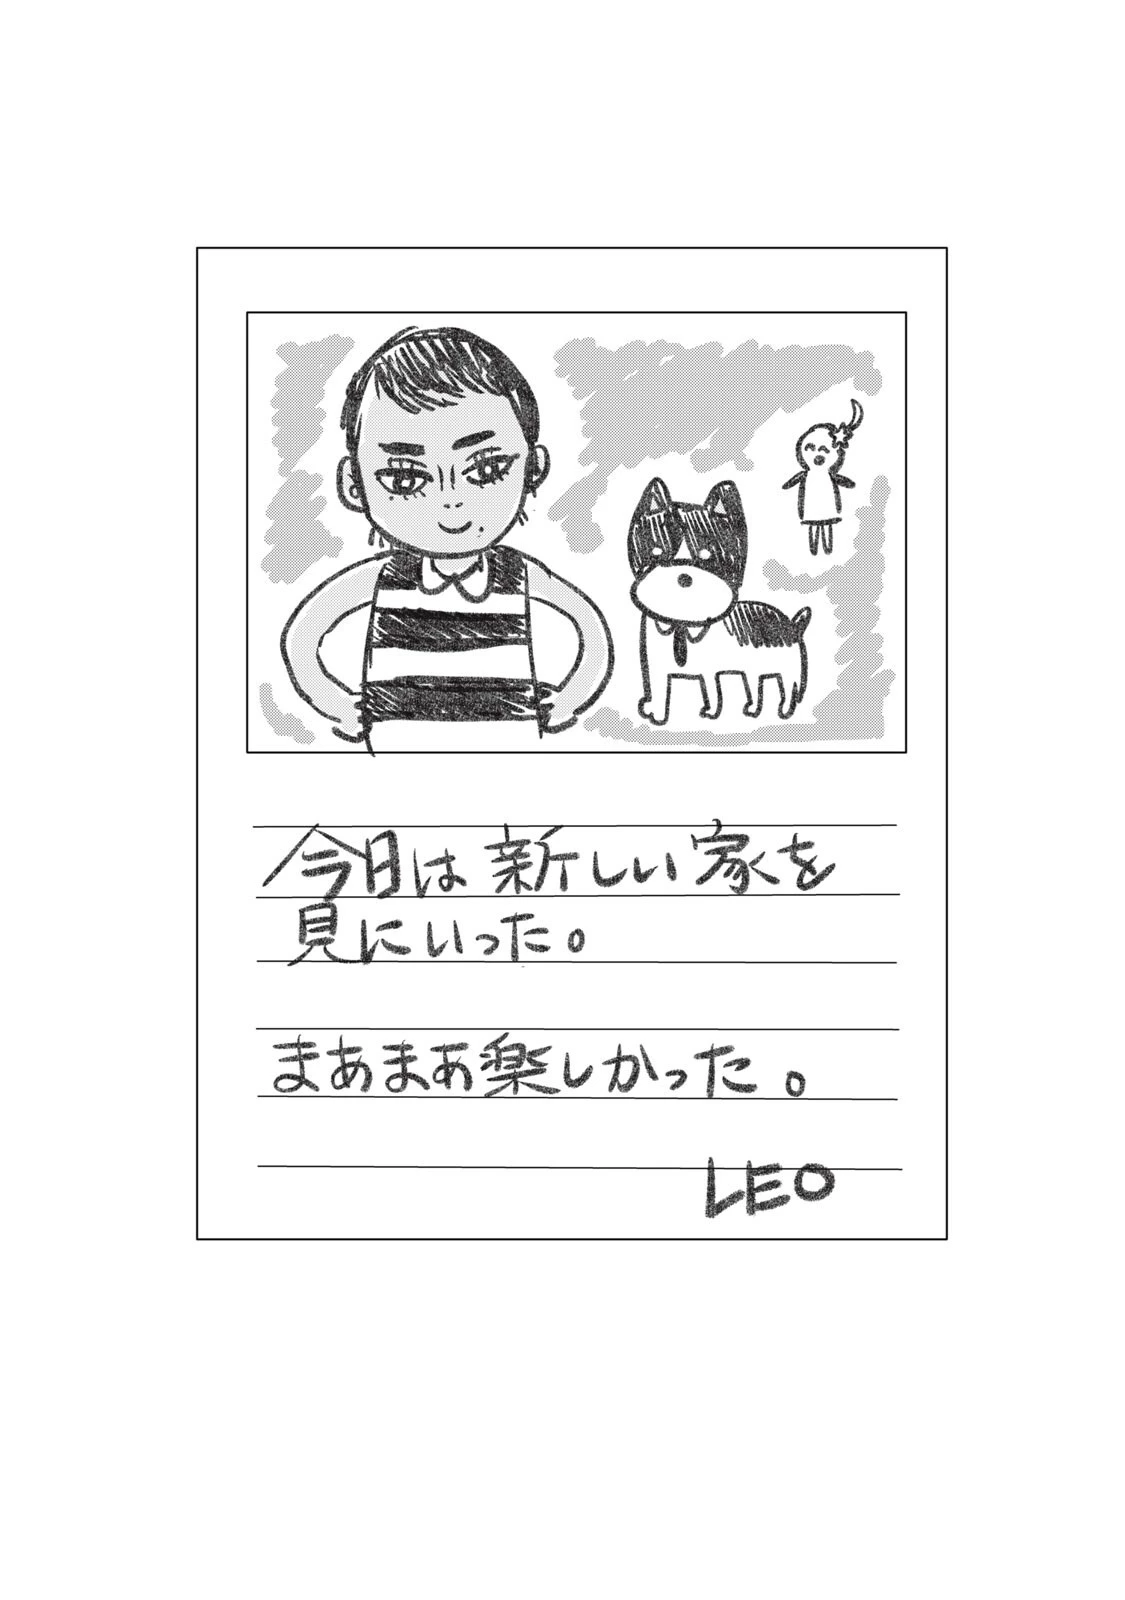 今日は新しい家を
見にいった。
まあまあ楽しかった。
LEO